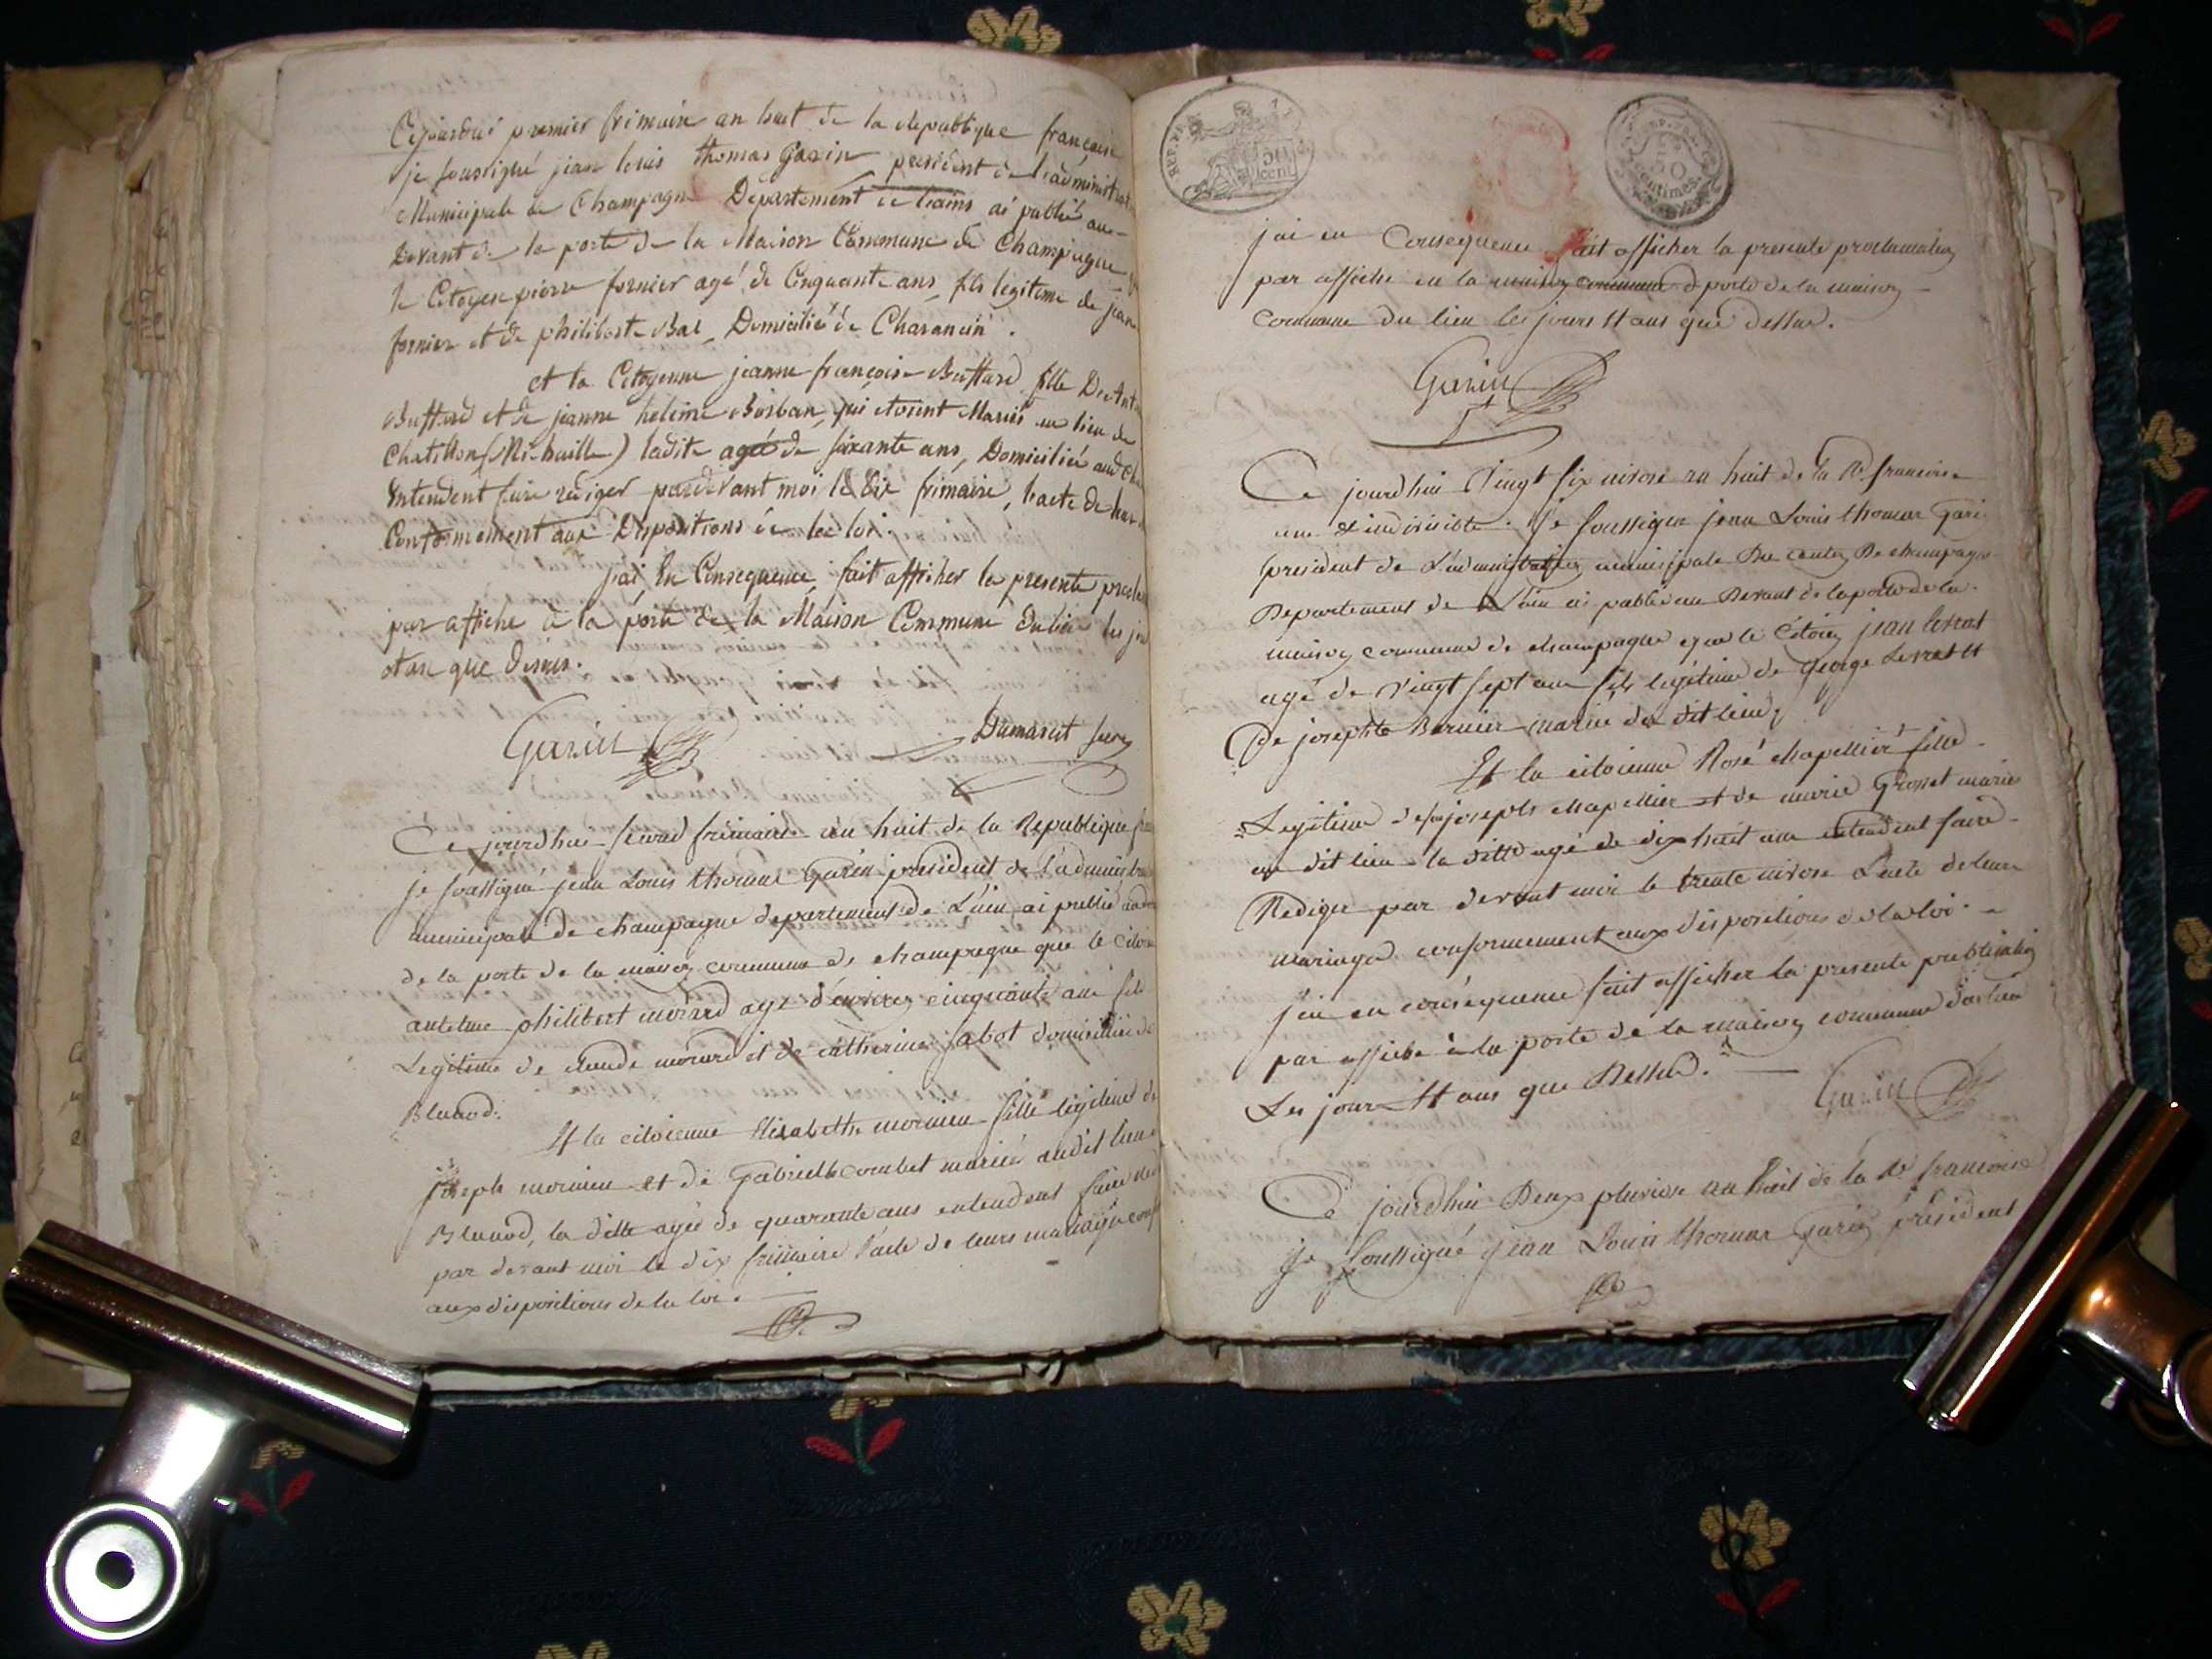 Cejourdui premier frimaire an huit de la Republique françoise
je soussigné jean louis thomas Garin president de l'administrat
Municipale de Champagne Département de l'ains ai publié au-
Devant de la porte de la Maison Commune de Champagne
le Citoyen pierre fornier agé de Cinquante ans, fils legitime de jean
fornier et de philiberte Bal, Domicilié de Charancin.
et la Citoyenne jeanne françoise Buttard fille De Ant
Buttard et de jeanne heleine Borban, qui etoient Mariés au lieu de
Chatillon (Mi-haille) ladite agée de soixante ans, Domiciliée aud
Entendent faire rediger pardevant moi le dix frimaire, l'acte de
Conformement aux Dispositions de la loi.
j'ai, En Consequence, fait afficher la presente
par affiche à la porte de la Maison Commune du lieu les
et an que dessus.
Garin Dumarest
Ce jourdhui second frimaire an huit de la Republique
Je soussigné jean Louis thomas Garin president de l'administra
municipale de champagne departement de L'ain ai publié
de la porte de la maison commune de champagne que le
antelme philibert morard age d'environ cinquante ans fils
Legitime de claude morard et de catherine jabot domicilié de
Blanod.
Et la citoienne Elisabeth mornieu fille legitime de
joseph mornieu et de Gabrielle combet mariés audit lieu
Blanod, la ditte agée de quarante ans entendent faire
par devant moi le dix frimaire l'acte de leurs mariage
aux dispositions de la loi.
REP. FR 50 cent
REP. FRA 50 centimes
j'ai en Consequence fait afficher la presente proclamation
par affiche en la maison commune porte de la maison
Commune du lieu les jours et ans que dessus.
Garin
Ce jourdhui Vingt six nivose an huit de la R. francoise
une & indivisible. Je soussigné jean Louis thomas Gari
president de L'administration municipale Du canton De champagne
Departement de L'ain ai publié au Devant de la porte de la
maison commune de champagne que le Citoien jean levrat
agé de Vingt sept ans fils legitime de george Levrat et
De josephte Bernier mariés du dit lieu,
Et la citoienne Rose chapellier fille
Legitime de joseph chapellier et de marie Grosset mariés
au dit lieu la ditte agé de dix huit ans entendent faire
Rediger par devant moi le trente nivose L'acte de leur
mariage conformement aux dispositions de la loi.
J'ai en consequence fait afficher la presente publication
par affiche à la porte de la maison commune
Les jour et ans que Dessus.
Garin
Ce jourdhui Deux pluviose an huit de la R. francoise
je soussigné jean Louis thomas Garin président